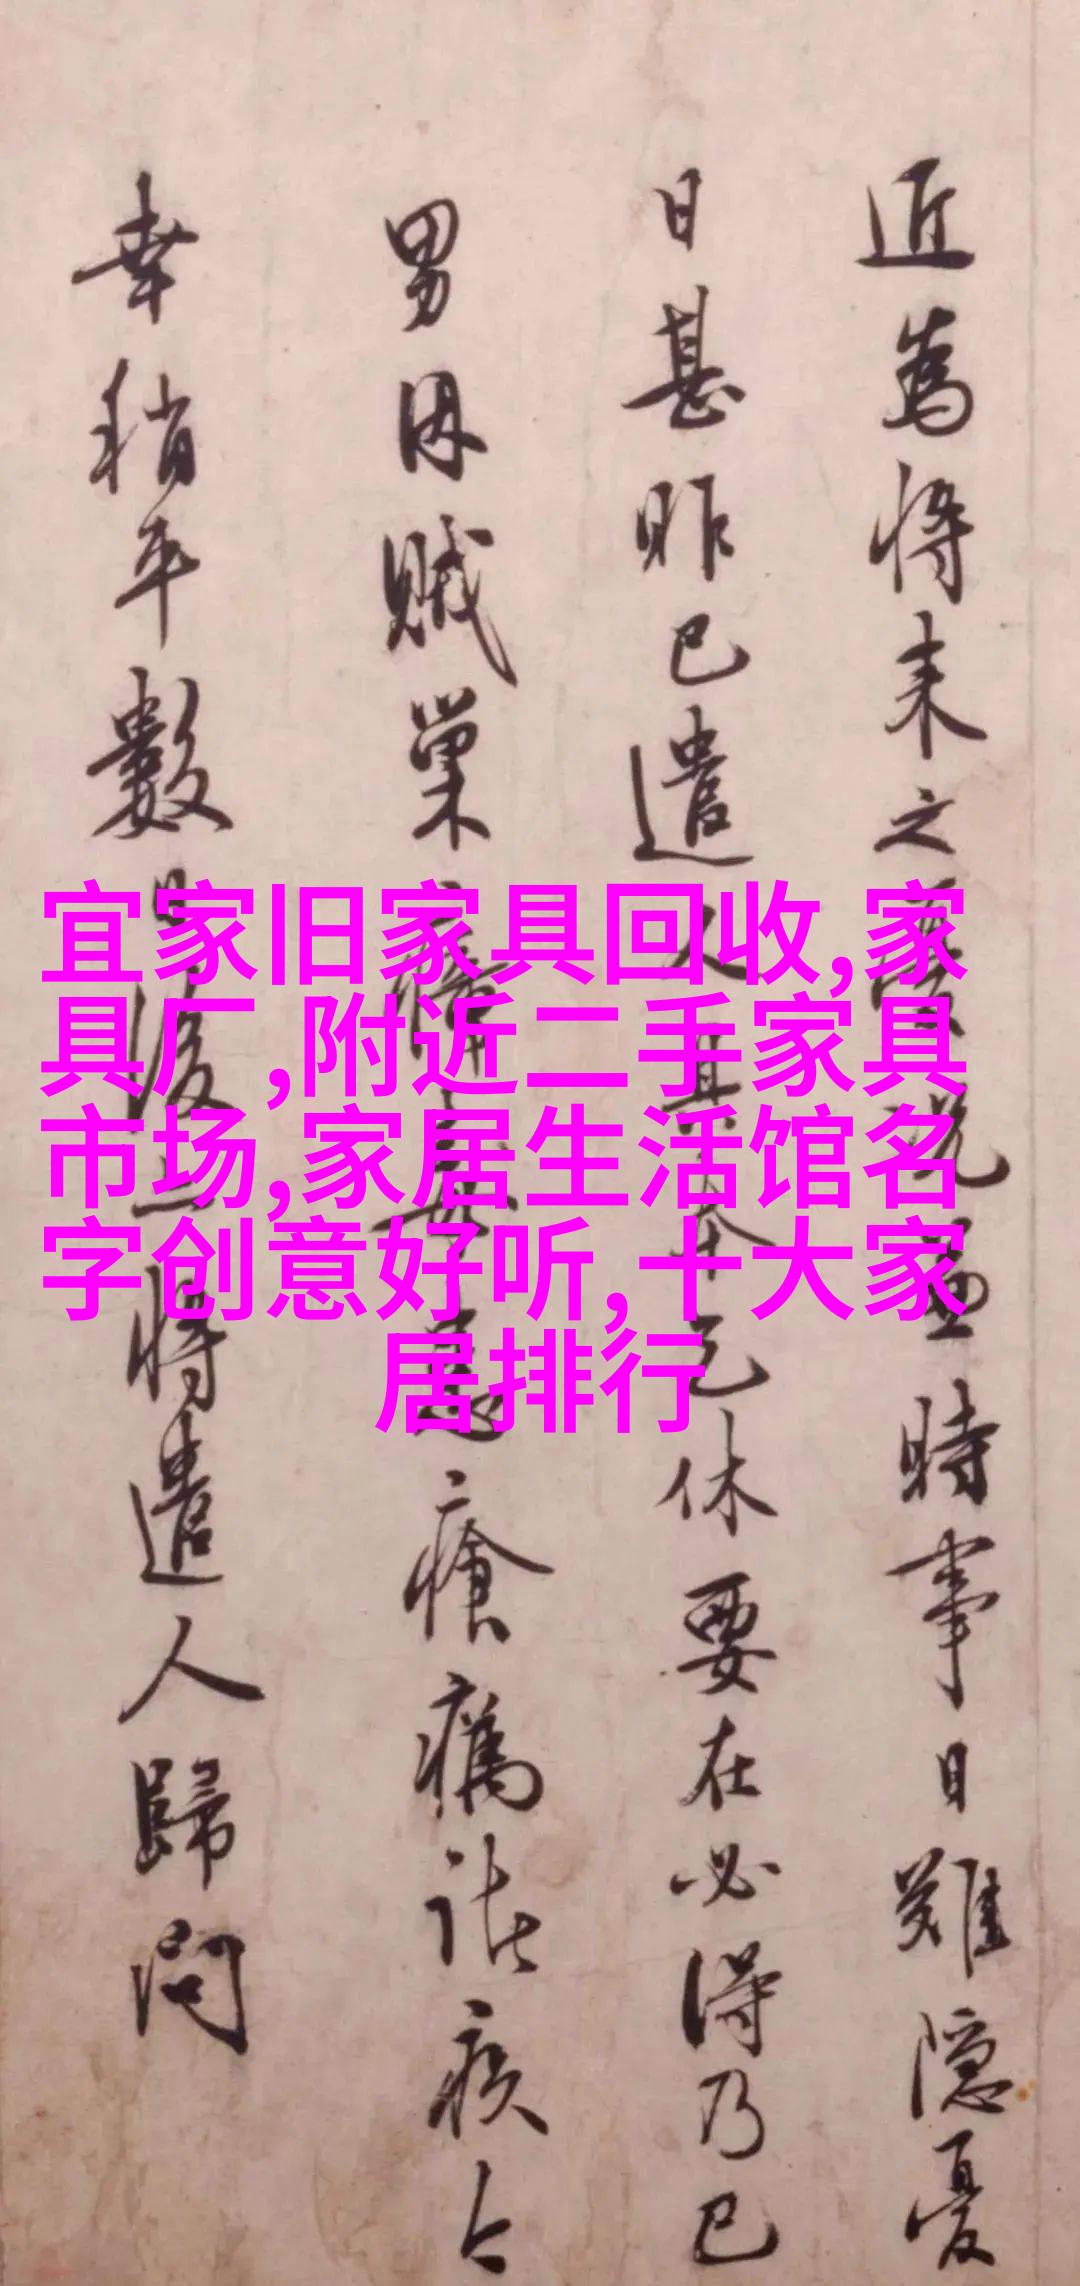 近為將来之
時事日難隱憂
日甚昨已遣人
休要在必得乃已
男因賊巢
瘡癘
疾今
幸稍平數日後
將遣人歸問
宜家旧家具回收,家
具厂,附近二手家具
市场,家居生活馆名
字创意好听,十大家
居排行